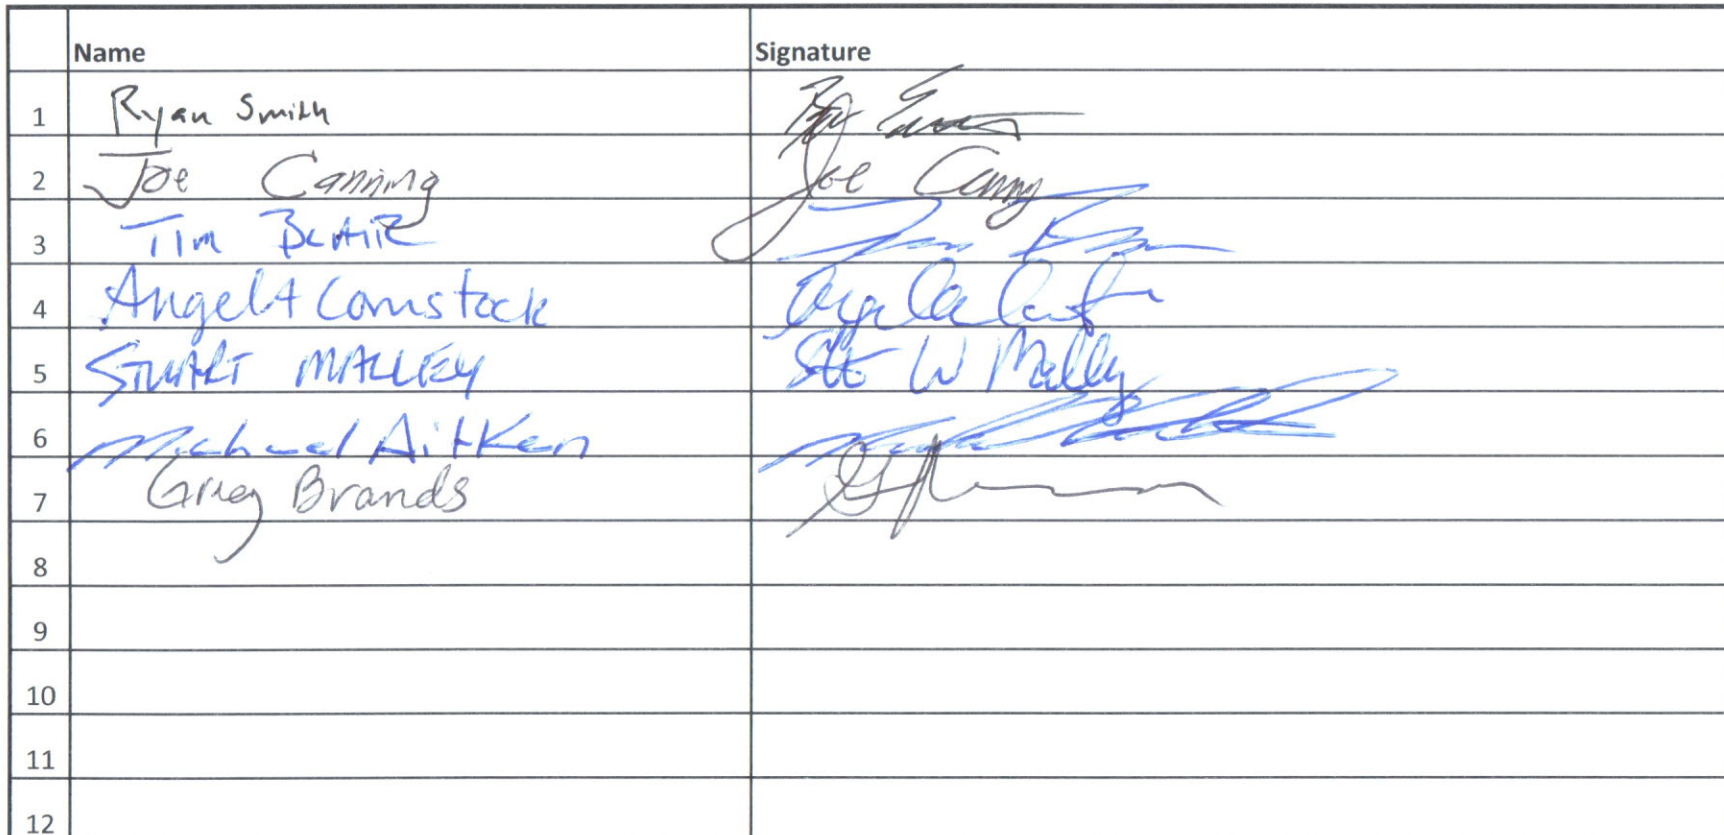 Name Signature
1 Ryan Smith
2 Joe Canning Joe Canny
3 Tim
4 Angela Comstock
5 STUART MALLEY W Mally
6 Michael Aitken
7 Greg Brands
8
9
10
11
12